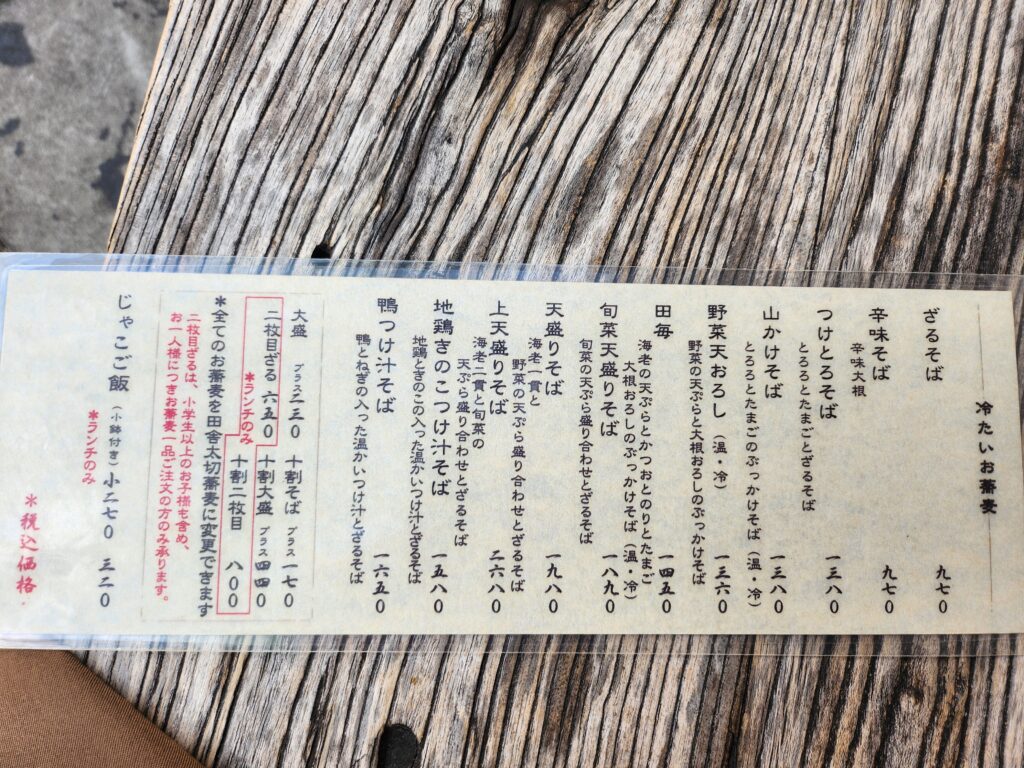 冷たいお蕎麦
ざるそば 九七〇
辛味そば 九七〇
辛味大根
つけとろそば 一三八〇
とろろとたまごとざるそば
山かけそば 一三八〇
とろろとたまごのぶっかけそば（温・冷）
野菜天おろし（温・冷） 一三六〇
野菜の天ぷらと大根おろしのぶっかけそば
田毎 一四五〇
海老の天ぷらとかつおとのりとたまご
大根おろしのぶっかけそば（温・冷）
旬菜天盛りそば 一八九〇
旬菜の天ぷら盛り合わせとざるそば
天盛りそば 一九八〇
海老一貫と
野菜の天ぷら盛り合わせとざるそば
上天盛りそば 二六八〇
海老二貫と旬菜の
天ぷら盛り合わせとざるそば
地鶏きのこつけ汁そば 一五八〇
地鶏ときのこの入った温かいつけ汁とざるそば
鴨つけ汁そば 一六五〇
鴨とねぎの入った温かいつけ汁とざるそば
大盛 プラス二三〇 十割そば プラス一七〇
二枚目ざる 六五〇 十割大盛 プラス四四〇
*ランチのみ 十割二枚目 八〇〇
*全てのお蕎麦を田舎太切蕎麦に変更できます
二枚目ざるは、小学生以上のお子様も含め、
お一人様につきお蕎麦一品ご注文の方のみ承ります。
じゃこご飯 （小鉢付き） 小二七〇 三二〇
*ランチのみ
*税込価格.